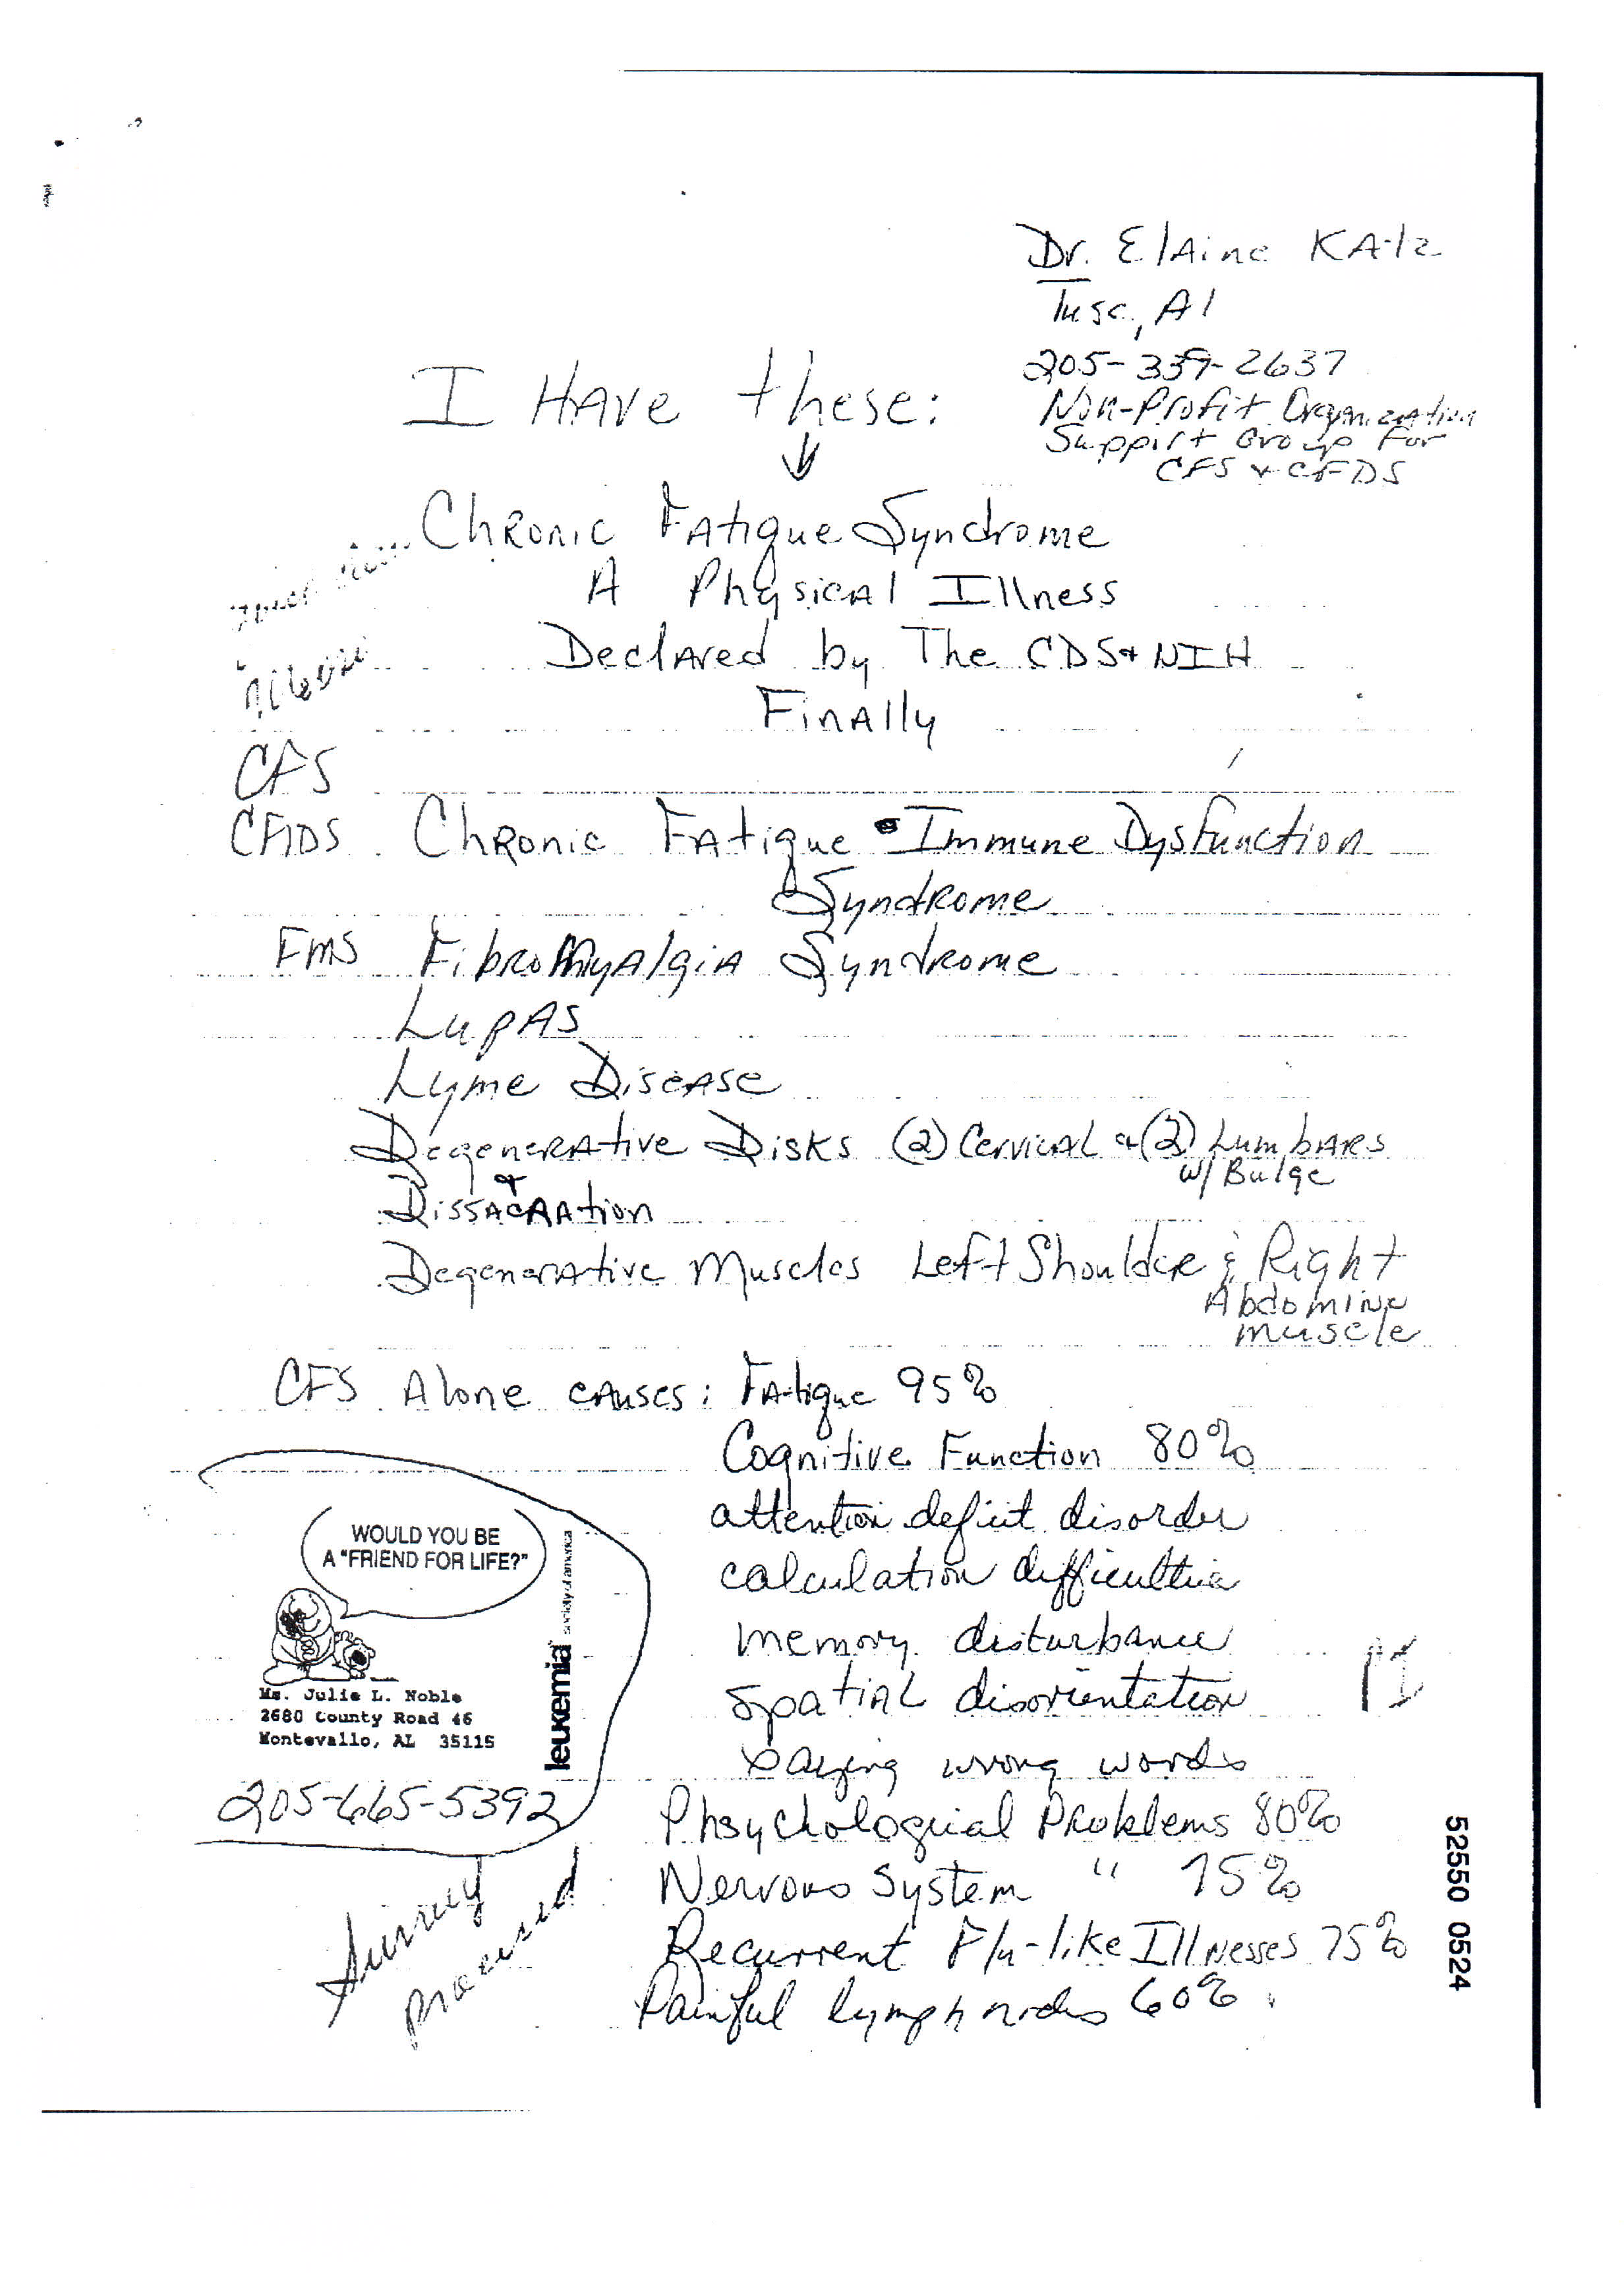 Dr. Elaine Katz
Tusc, Al
205-339-2637
Non-Profit Organization
Support Group For
CFS & CFDS
I Have these:
↓
Chronic Fatigue Syndrome
A Physical Illness
Declared by The CDS & NIH
Finally
CFS
CFIDS Chronic Fatigue Immune Dysfunction
Syndrome
FMS FibroMyalgia Syndrome
Lupas
Lyme Disease
Degenerative Disks (2) Cervical & (2) Lumbars
w/ Bulge
&
Degenerative Muscles Left Shoulder & Right
Abdomine
muscle
CFS Alone causes: Fatigue 95%
Cognitive Function 80%
attention deficit disorder
calculation difficulties
memory disturbance
spatial disorientation
saying wrong words
Phsychological Problems 80%
Nervous System " 75%
Recurrent Flu-like Illnesses 75%
Painful lymph nodes 60%
WOULD YOU BE
A "FRIEND FOR LIFE?"
leukemia society of america
Ms. Julie L. Noble
2680 County Road 46
Montevallo, AL 35115
205-665-5392
Survey
Processed
52550 0524